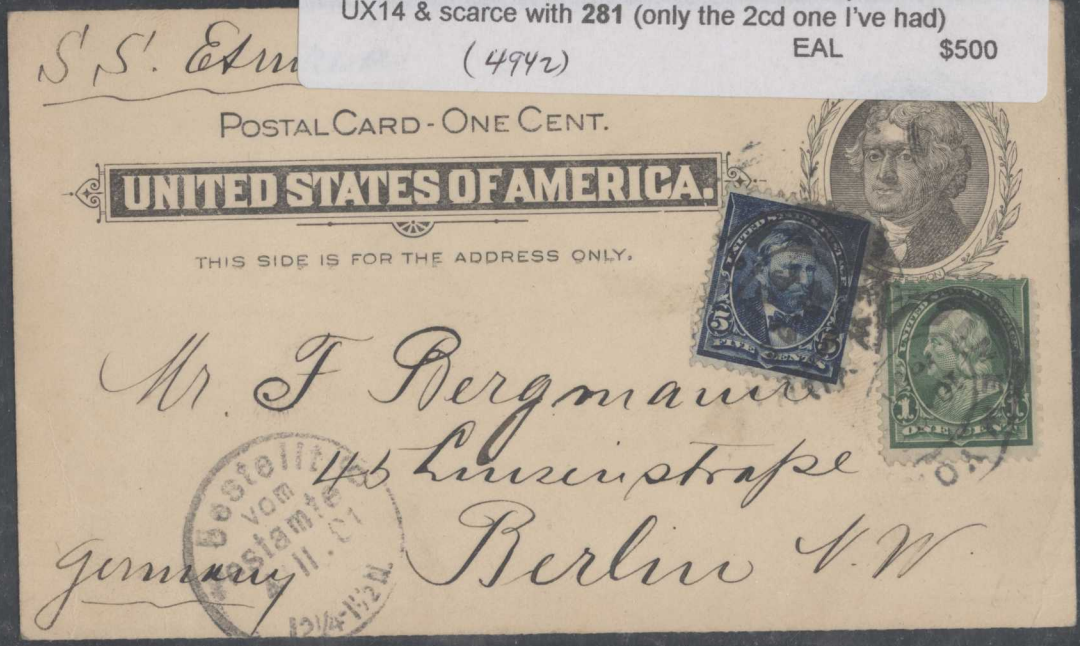 UX14 & scarce with 281 (only the 2cd one I've had)
(4942) EAL $500
S S.
POSTAL CARD - ONE CENT.
UNITED STATES OF AMERICA.
THIS SIDE IS FOR THE ADDRESS ONLY.
5 5
FIVE CENTS
1 1
ONE CENT
Mr. F Bergmann
45 Luisenstraße
Berlin N.W.
Germany
Bestellt
vom
Postamte
11. 01
12¼-1½N.